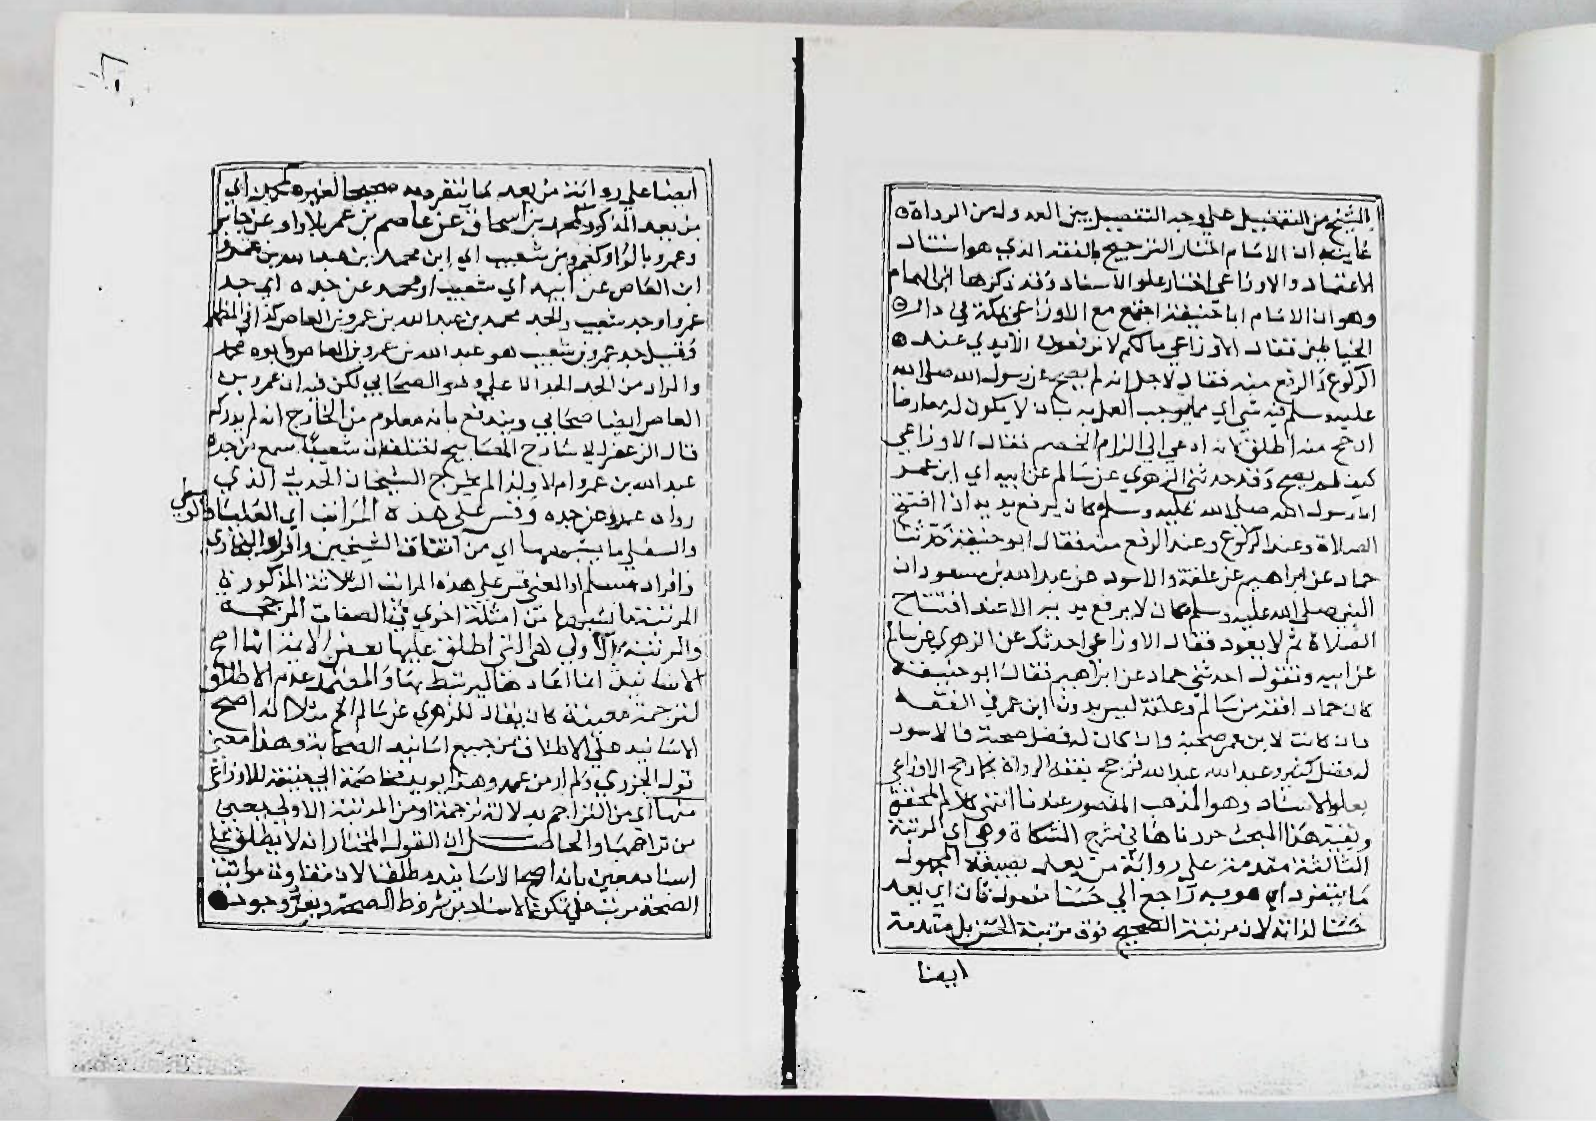 الشيخ من التفضيل على وجه التفصيل بين العدول من الرواة
غايته ان الامام اختار الترجيح بالفقه الذي هو استناد
الاعتماد والاوزاعي اختار علو الاسناد وقد ذكرها ابن الهمام
وهو ان الامام ابا حنيفة اجتمع مع الاوزاعي بمكة في دار
الحناطين فقال الاوزاعي ما لكم لا ترفعون الايدي عند
الركوع والرفع منه فقال لاجل انه لم يصح عن رسول الله صلى الله
عليه وسلم فيه شي اي مما يوجب العمل به بان لا يكون له معارضا
ارجح منه اطلق لانه ادعى الى الزام الخصم فقال الاوزاعي
كيف لم يصح وقد حدثني الزهري عن سالم عن ابيه اي ابن عمر
ان رسول الله صلى الله عليه وسلم كان يرفع يديه اذا افتتح
الصلاة وعند الركوع وعند الرفع منه فقال ابو حنيفة حدثنا
حماد عن ابراهيم عن علقمة والاسود عن عبد الله بن مسعود ان
النبي صلى الله عليه وسلم كان لا يرفع يديه الا عند افتتاح
الصلاة ثم لا يعود فقال الاوزاعي احدثك عن الزهري عن سالم
عن ابيه وتقول احدثني حماد عن ابراهيم فقال ابو حنيفة
كان حماد افقه من سالم وعلقمة ليس بدون ابن عمر في الفقه
وان كانت لابن عمر صحبة وان كان له فضل صحبة فالاسود
له فضل كثير وعبد الله عبد الله فرجح بفقه الرواة كما رجح الاوزاعي
بعلو الاسناد وهو المذهب المنصور عندنا انتهى كلام المحقق
وبقية هذا المبحث حررناها في شرح المشكاة وهي اي المرتبة
الثالثة مقدمة على رواية من يعد بصيغة المجهول
ما ينفرد اي هو به راجع الى حسنا مفعول ثان اي يعد
حسنا لذاته لان مرتبة الصحيح فوق مرتبة الحسن بل مقدمة
ايضا
ايضا على رواية من يعد ما ينفرد به صحيحا لغيره اي
من يعد المذكور كمحمد بن اسحاق عن عاصم بن عمر بلا واو عن جابر
وعمرو بالواو كعمرو بن شعيب اي ابن محمد بن عبد الله بن عمرو
ابن العاص عن ابيه اي شعيب او محمد عن جده اي جد
عمرو او جد شعيب والجد محمد بن عبد الله بن عمرو بن العاص كذا في
وقيل جد عمرو بن شعيب هو عبد الله بن عمرو بن العاص وابوه محمد
والمراد من الجد الجد الاعلى وهو الصحابي لكن فيه ان عمرو بن
العاص ايضا صحابي ويندفع بانه معلوم من الخارج انه لم يدركه
قال الزعفراني شارح المصابيح اختلف ان شعيبا سمع من جده
عبد الله بن عمرو ام لا ولذا لم يخرج الشيخان الحديث الذي
رواه عمرو عن جده وقس على هذه المراتب اي العليا
والسفلى ما يشبهها اي من اتفاق الشيخين وافراد البخاري
وافراد مسلم او المعنى قس على هذه المراتب الثلاثة المذكورة
المرتبة ما يشبهها من امثلة اخرى في الصفات المرجحة
والمرتبة الاولى هي التي اطلق عليها بعض الائمة انها اصح
الاسانيد انما اعاد هنا ليرتبط بها والمعتمد عدم الاطلاق
لترجمة معينة كان يقال للزهري عن سالم الخ مثلا انه اصح
الاسانيد على الاطلاق من جميع اسانيد الصحابة وهذا معنى
قول الجزري ولم ار من عمم وهذا يؤيد مخاصمة ابي حنيفة للاوزاعي
منها اي من التراجم بدلالة ترجمة او من المرتبة الاولى يعني
من تراجمها والحاصل ان القول المختار انه لا يطلق على
اسناد معين بانه اصح الاسانيد مطلقا لان تفاوت مراتب
الصحة مرتب على تمكن الاسناد من شروط الصحة ويعز وجود